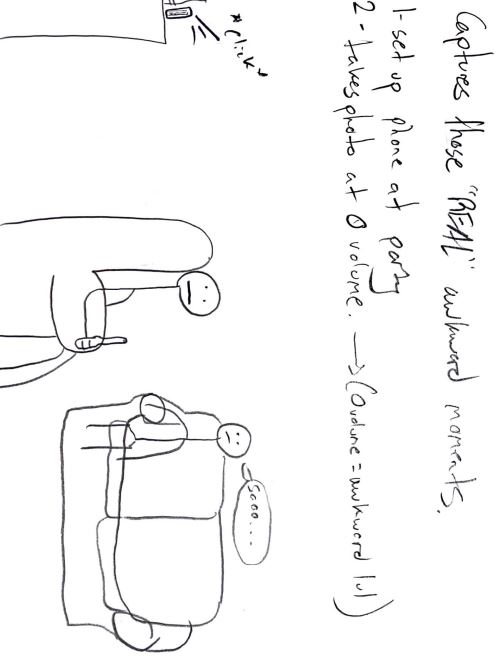 Captures those "REAL" awkward moments.
1- set up phone at party
2- takes photo at 0 volume. → (0 volume = awkward lul)
*click*
Sooo...